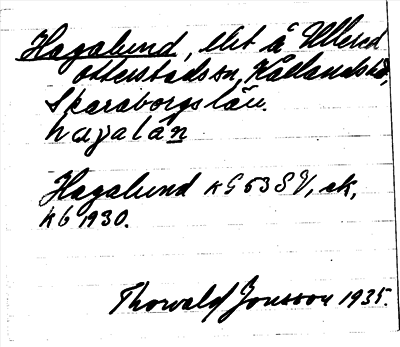 Hagalund, lht å Ullersd
Otterstads sn, Kållands hd,
Skaraborgs län.
hagalán
Hagalund kG53SV, ek,
kb 1930.
Thorwald Jonsson 1935.